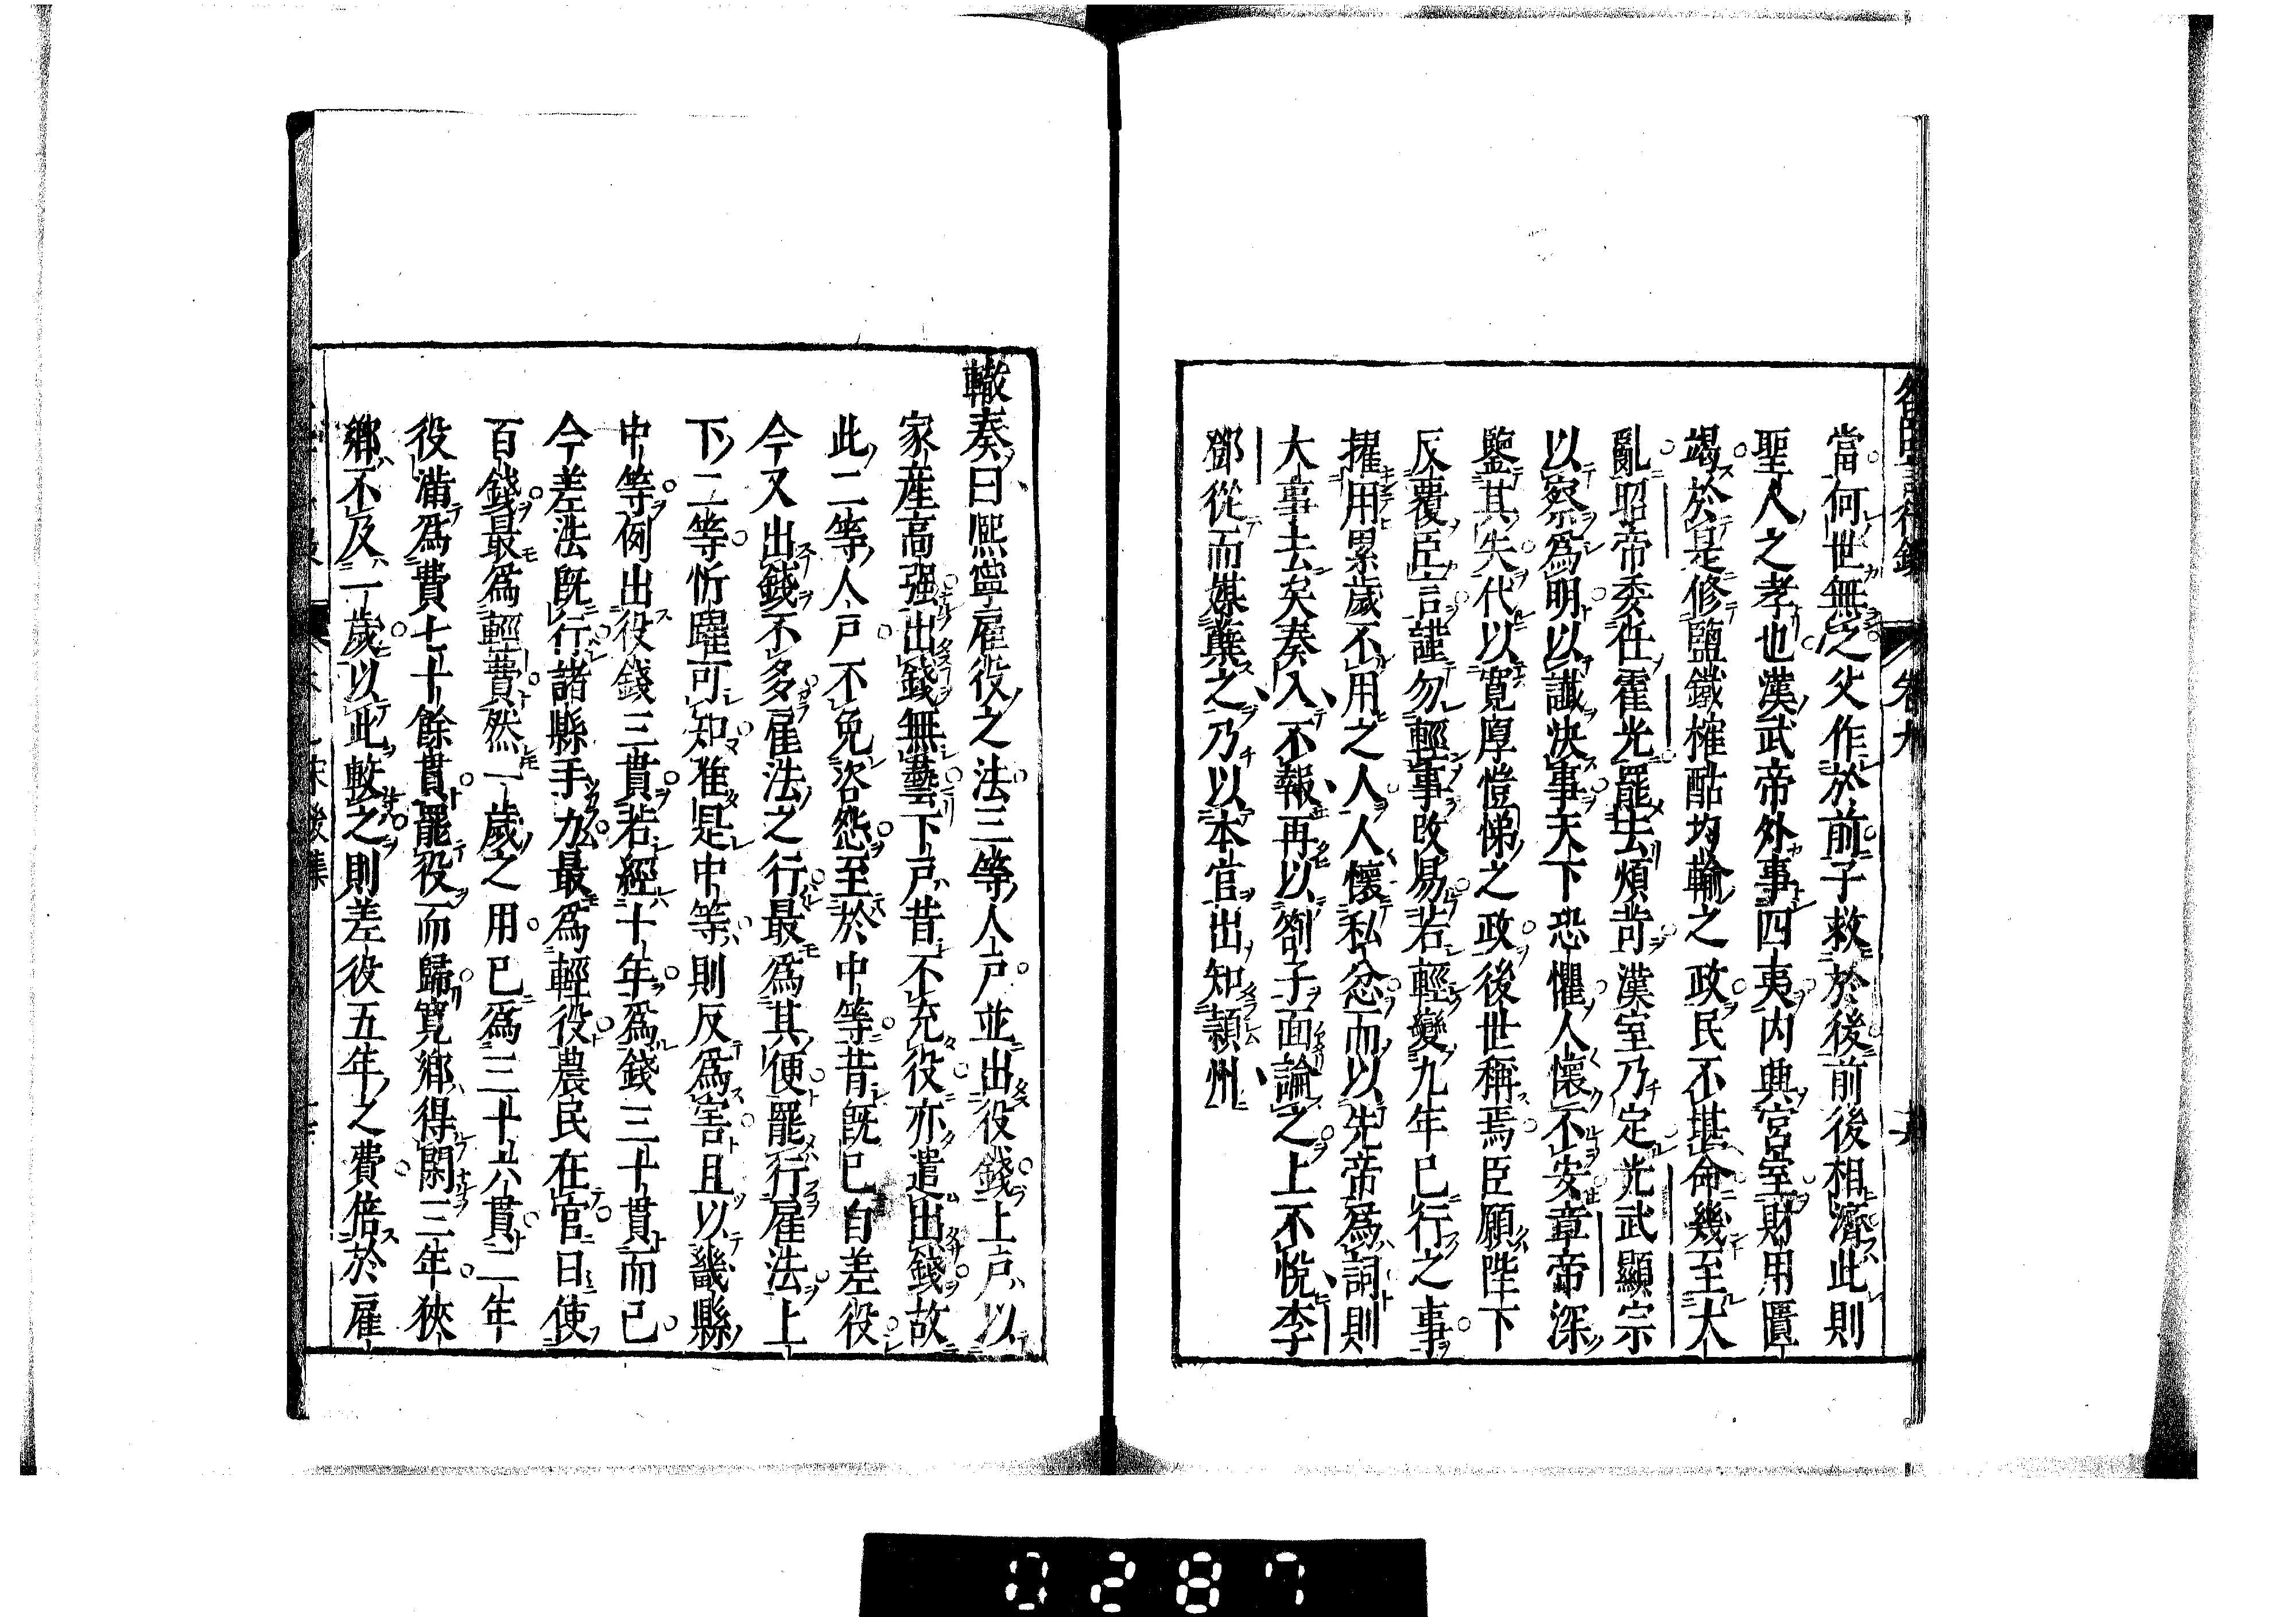 當何世無之父作於前子救於後前後相濟此則
聖人之孝也漢武帝外事四夷内興宮室財用匱
竭於是修鹽鐵榷酤均輸之政民不堪命幾至大
亂昭帝委任霍光罷去煩苛漢室乃定光武顯宗
以察爲明以讖決事天下恐懼人懷不安章帝深
鑒其失代以寛厚愷悌之政後世稱焉臣願陛下
反覆臣言謹勿輕事改易若輕變九年已行之事
擢用累歲不用之人人懷私忿而以先帝爲詞則
大事去矣奏入不報再以劄子面論之上不悅李
鄧從而媒蘖之乃以本官出知潁州
轍奏曰熈寧雇役之法三等人戸並出役錢上戸以
家産高强出錢無藝下戸昔不充役亦遣出錢故
此二等人戸不免咨怨至於中等昔既已自差役
今又出錢不多雇法之行最爲其便罷行雇法上
下二等忻躍可知唯是中等則反爲害且以畿縣
中等例出役錢三貫若經十年爲錢三十貫而已
今差法既行諸縣手力最爲輕役農民在官日使
百錢最爲輕費然一歲之用已爲三十六貫二年
役滿爲費七十餘貫罷役而歸寛鄉得閑三年狹
鄉不及一歲以此較之則差役五年之費倍於雇
0287